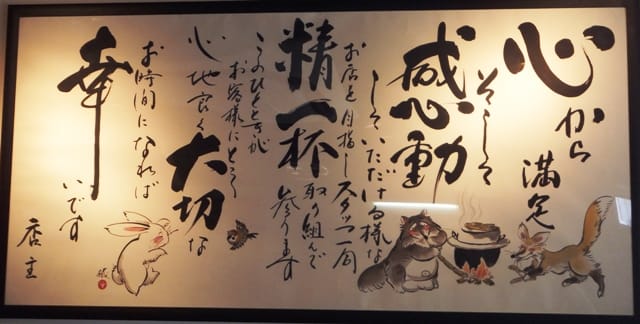 心から
満足
そして
感動
していただける様な
お店を目指しスタッフ一同
精一杯
取り組んで
参ります
このひとときが
お客様にとって
大切な
心地良く
お時間になれば
幸
いです
店主